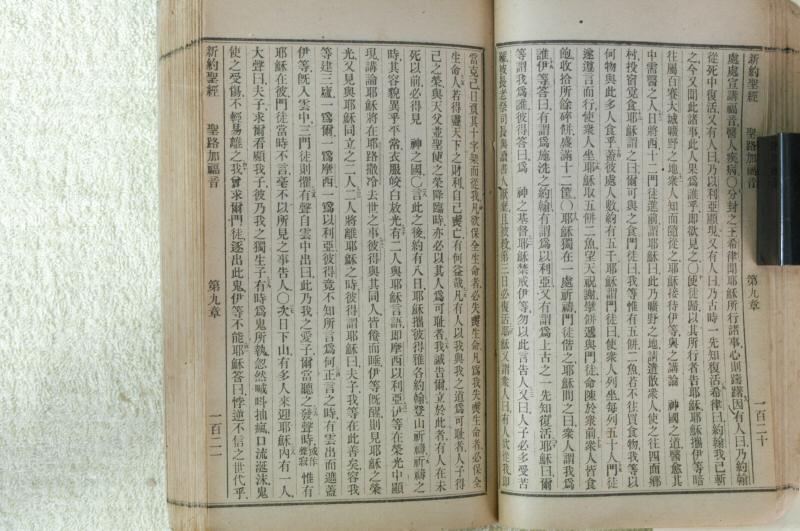 新約聖經　聖路加福音　第九章　一百二十
處處宣講福音醫人疾病〇分封之王希律聞耶穌所行諸事心則躊躇因有人曰乃約翰
從死中復活又有人曰乃以利亞顯現又有人曰乃古時一先知復活希律曰約翰我已斬
之今又聞此諸事此人果爲誰乎卽欲見之〇使徒歸以其所行者告耶穌耶穌攜伊等暗
往屬伯賽大城曠野之地衆人知而隨從之耶穌接待伊等與之講論　神國之道醫愈其
中需醫之人日將西十二門徒進前謂耶穌曰此乃曠野之地請遣散衆人使之往四面鄉
村投宿覓食耶穌謂之曰爾可與之食門徒曰我等惟有五餅二魚若不往買食物我等以
何物與此多人食乎蓋彼處人數約有五千耶穌謂門徒曰使衆人列坐每列五十人門徒
遂遵言而行使衆人坐耶穌取五餅二魚望天祝謝擘餅遞與門徒命陳於衆前衆人皆食
飽收拾所餘碎餅盛滿十二筐〇耶穌獨在一處祈禱門徒偕之耶穌問之曰衆人謂我爲
誰伊等答曰有謂爲施洗之約翰有謂爲以利亞又有謂爲上古之一先知復活耶穌曰爾
等謂我爲誰彼得答曰爲　神之基督耶穌禁戒伊等勿以此言告人又曰人子必多受苦
被長老祭司長與讀書人厭棄且被殺第三日必復生耶穌又謂衆人曰有人欲從我卽
當克己日負其十字架而從我凡欲保全生命者必失喪生命凡爲我失喪生命者必保全
生命人若得盡天下之財利自己喪亡有何益哉凡有人以我與我之道爲可恥者人子得
己之榮與天父並聖使之榮降臨時亦必以其人爲可恥者我誠告爾立於此者有人在未
死以前必得見　神之國〇言此之後約有八日耶穌攜彼得雅各約翰登山祈禱祈禱之
時其容貌異乎平常衣服皎白放光有二人與耶穌言語卽摩西以利亞伊等在榮光中顯
現講論耶穌將在耶路撒冷去世之事彼得與其同人皆倦而睡伊等旣醒則見耶穌之榮
光又見與耶穌同立之二人二人將離耶穌之時彼得謂耶穌曰夫子我等在此善矣容我
等建三廬一爲爾一爲摩西一爲以利亞彼得竟不知所言爲何正言之時有雲出而遮蓋
伊等旣入雲中三門徒則懼有聲自雲中出曰此乃我之愛子爾當聽之發聲時或作聲寂惟有
耶穌在彼門徒當時不言毫不以所見之事告人〇次日下山有多人來迎耶穌內有一人
大聲曰夫子求爾看顧我子彼乃我之獨生子有時爲鬼所執忽然喊呌抽瘋口流涎沫鬼
使之受傷不輕易離之我曾求爾門徒逐出此鬼伊等不能耶穌答曰悖逆不信之世代乎
新約聖經　聖路加福音　第九章　一百二一